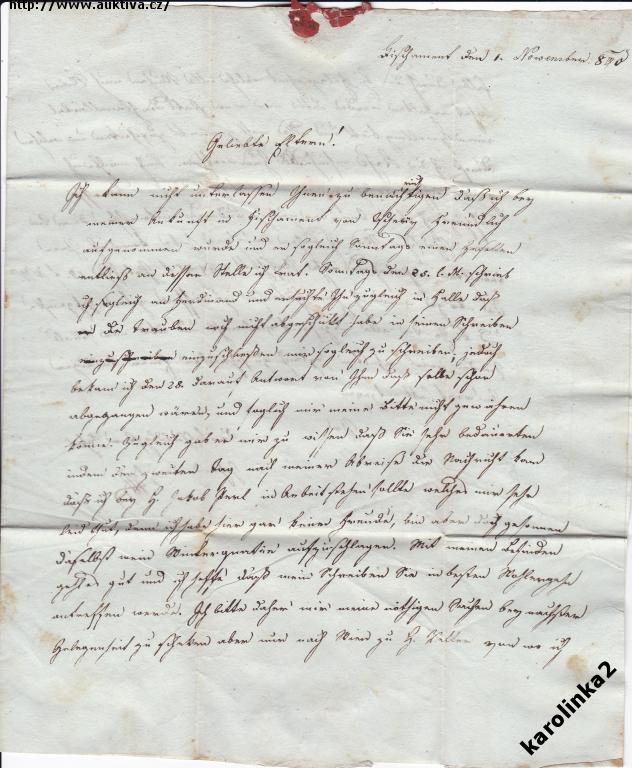 http://www.auktiva.cz/
Fischament den 1. November 840
Geliebte Eltern!
Ich kann nicht unterlassen Ihnen zu benachrichtigen daß ich bey
meiner Ankunft in Fischament von freundlich
aufgenommen wurde und er sogleich Sonntags einen
entließ an dessen Stelle ich trat. Sonntags den 25. schrieb
ich sogleich an Ferdinand und ersuchte Ihn zugleich im Falle daß
er die Trauben noch nicht abgeschickt habe in seinen Schreiben
einzuschließen mir sogleich zu schreiben, jedoch
bekam ich den 28. darauf Antwort von Ihm daß selbe schon
abgegangen wären, und folglich mir meine Bitte nicht gewähren
könne. Zugleich gab er mir zu wissen daß Sie sehr bedauerten
indem den zweiten Tag nach meiner Abreise die Nachricht kam
daß ich bey H. Jakob Perl in Arbeit stehen sollte welches mir sehr
leid thut, denn ich habe hier gar keine Freunde, bin aber doch gesonnen
daselbst mein Winterquartier aufzuschlagen. Mit meinem Befinden
geht es gut und ich hoffe, daß mein Schreiben Sie in besten Wohlergehn
antreffen werde. Ich bitte daher mir meine nöthigen Sachen bey nächster
Gelegenheit zu schicken aber nur nach Wien zu H. von wo ich
karolinka2